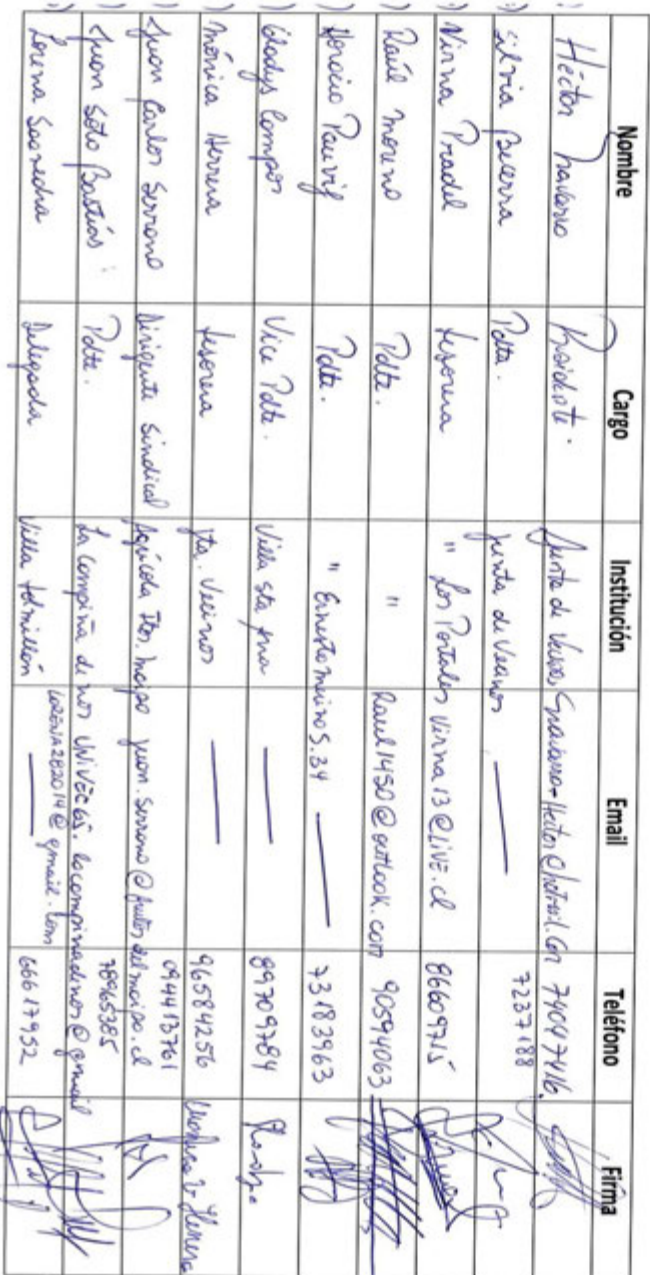 Nombre Cargo Institución Email Teléfono Firma
Héctor Navarro Presidente. Junta de Vecinos 74047416
Silvia Becerra Pdta. Junta de Vecinos — 7237188
Virna Pradel tesorera " Los Portales virna13@live.cl 86609715
Raúl Moreno Pdte. " Raul1450@outlook.com 90594063
Horacio Pdte. " Ernesto 5.34 — 73183963
Gladys Campos Vice Pdte. Villa Sta Ana — 89709784
Mónica Herrera tesorera Jta. Vecinos — 96584256 Herrera
Juan Carlos Serrano Dirigente Sindical Agrícola Maipo juan.serrano@frutosdelmaipo.cl 094413761
Juan Soto Bastías Pdte. La Campiña de Nos 78965385
Lorena Saavedra Delegada Villa — 66617952